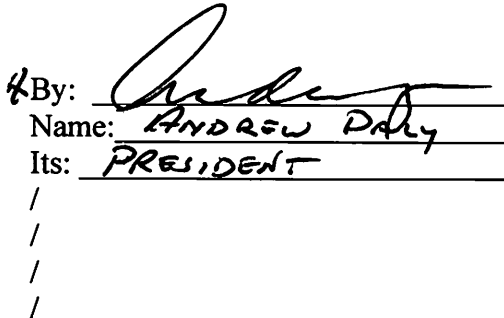 By:
Name: ANDREW DALY
Its: PRESIDENT
/
/
/
/